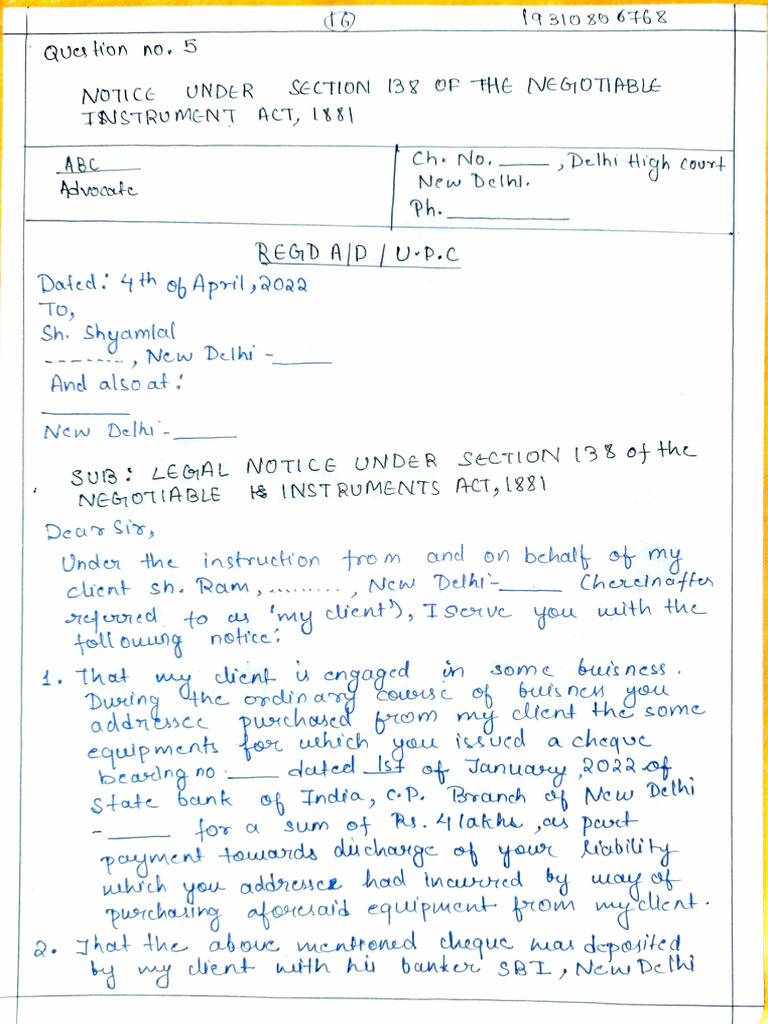 (16)
19310806768
Question no. 5
NOTICE UNDER SECTION 138 OF THE NEGOTIABLE
INSTRUMENT ACT, 1881
ABC
Advocate
Ch. No. ____, Delhi High court
New Delhi.
Ph. ________
REGD A/D / U.P.C
Dated: 4th of April, 2022
To,
Sh. Shyamlal
--------, New Delhi - ____
And also at:
________
New Delhi - ____
SUB: LEGAL NOTICE UNDER SECTION 138 of the
NEGOTIABLE INSTRUMENTS ACT, 1881
Dear Sir,
Under the instruction from and on behalf of my
client Sh. Ram, ........., New Delhi - ____ (hereinafter
referred to as 'my client'), I serve you with the
following notice:
1. That my client is engaged in some buisness.
During the ordinary course of buisness you
addressee purchased from my client the some
equipments for which you issued a cheque
bearing no. ____ dated 1st of January, 2022 of
State bank of India, C.P. Branch of New Delhi
- ____ for a sum of Rs. 4 lakhs, as part
payment towards discharge of your liability
which you addressee had incurred by way of
purchasing aforesaid equipment from my client.
2. That the above mentioned cheque was deposited
by my client with his banker SBI, New Delhi